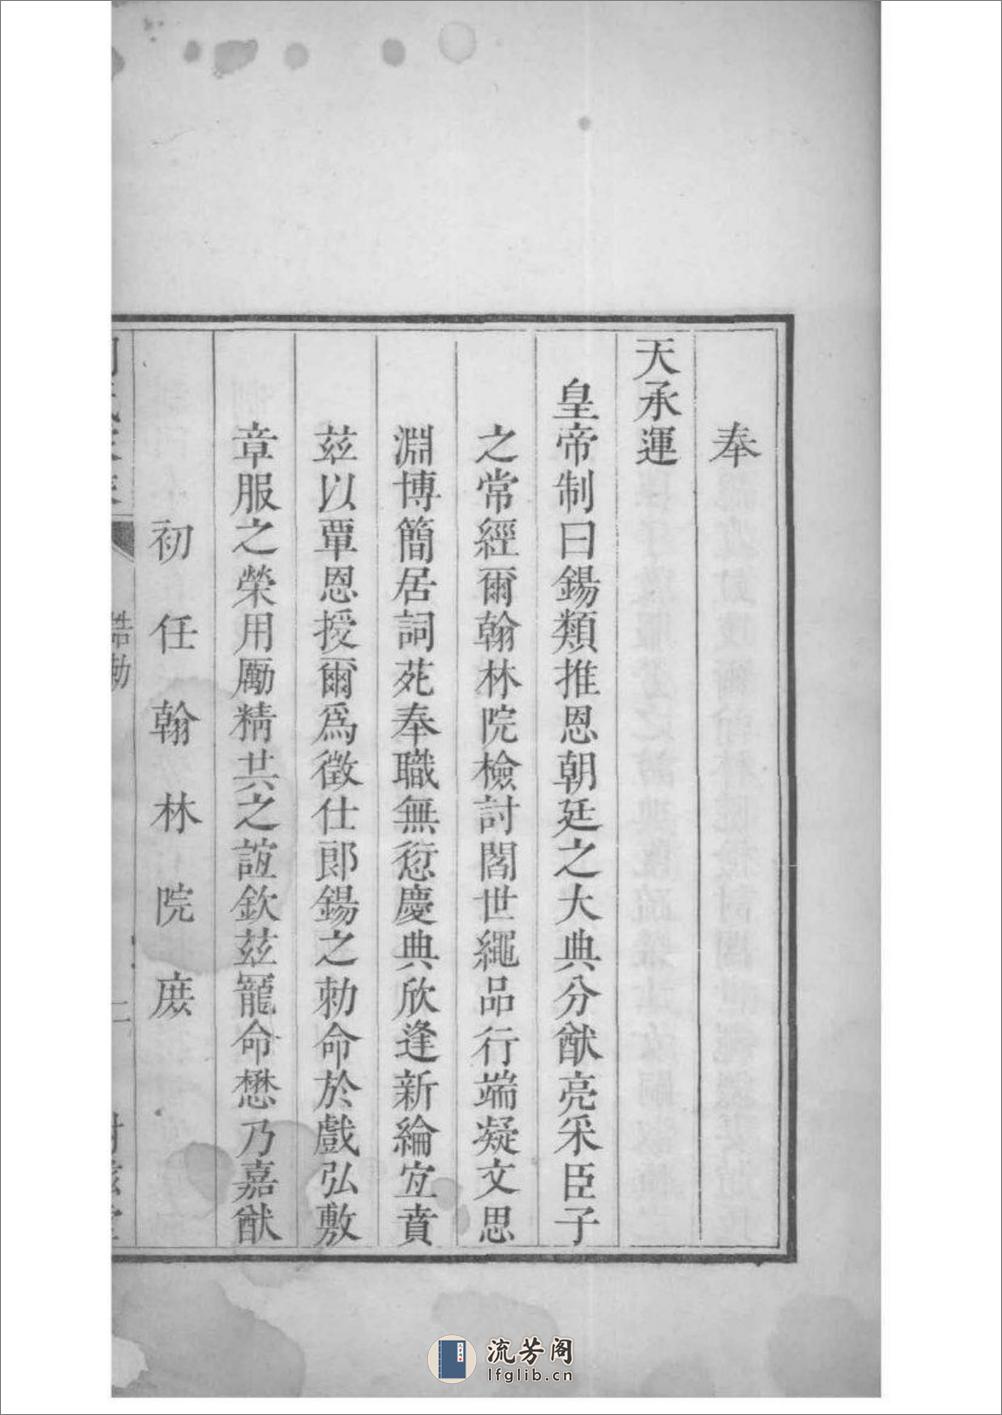 奉
天承運
皇帝制曰錫類推恩朝廷之大典分猷亮采臣子
之常經爾翰林院檢討閻世繩品行端凝文思
淵博簡居詞苑奉職無愆慶典欣逢新綸宜賁
茲以覃恩授爾爲徵仕郎錫之勅命於戲弘敷
章服之榮用勵精共之誼欽茲寵命懋乃嘉猷
初任翰林院庶
誥勅
二
流芳阁
lfglib.cn